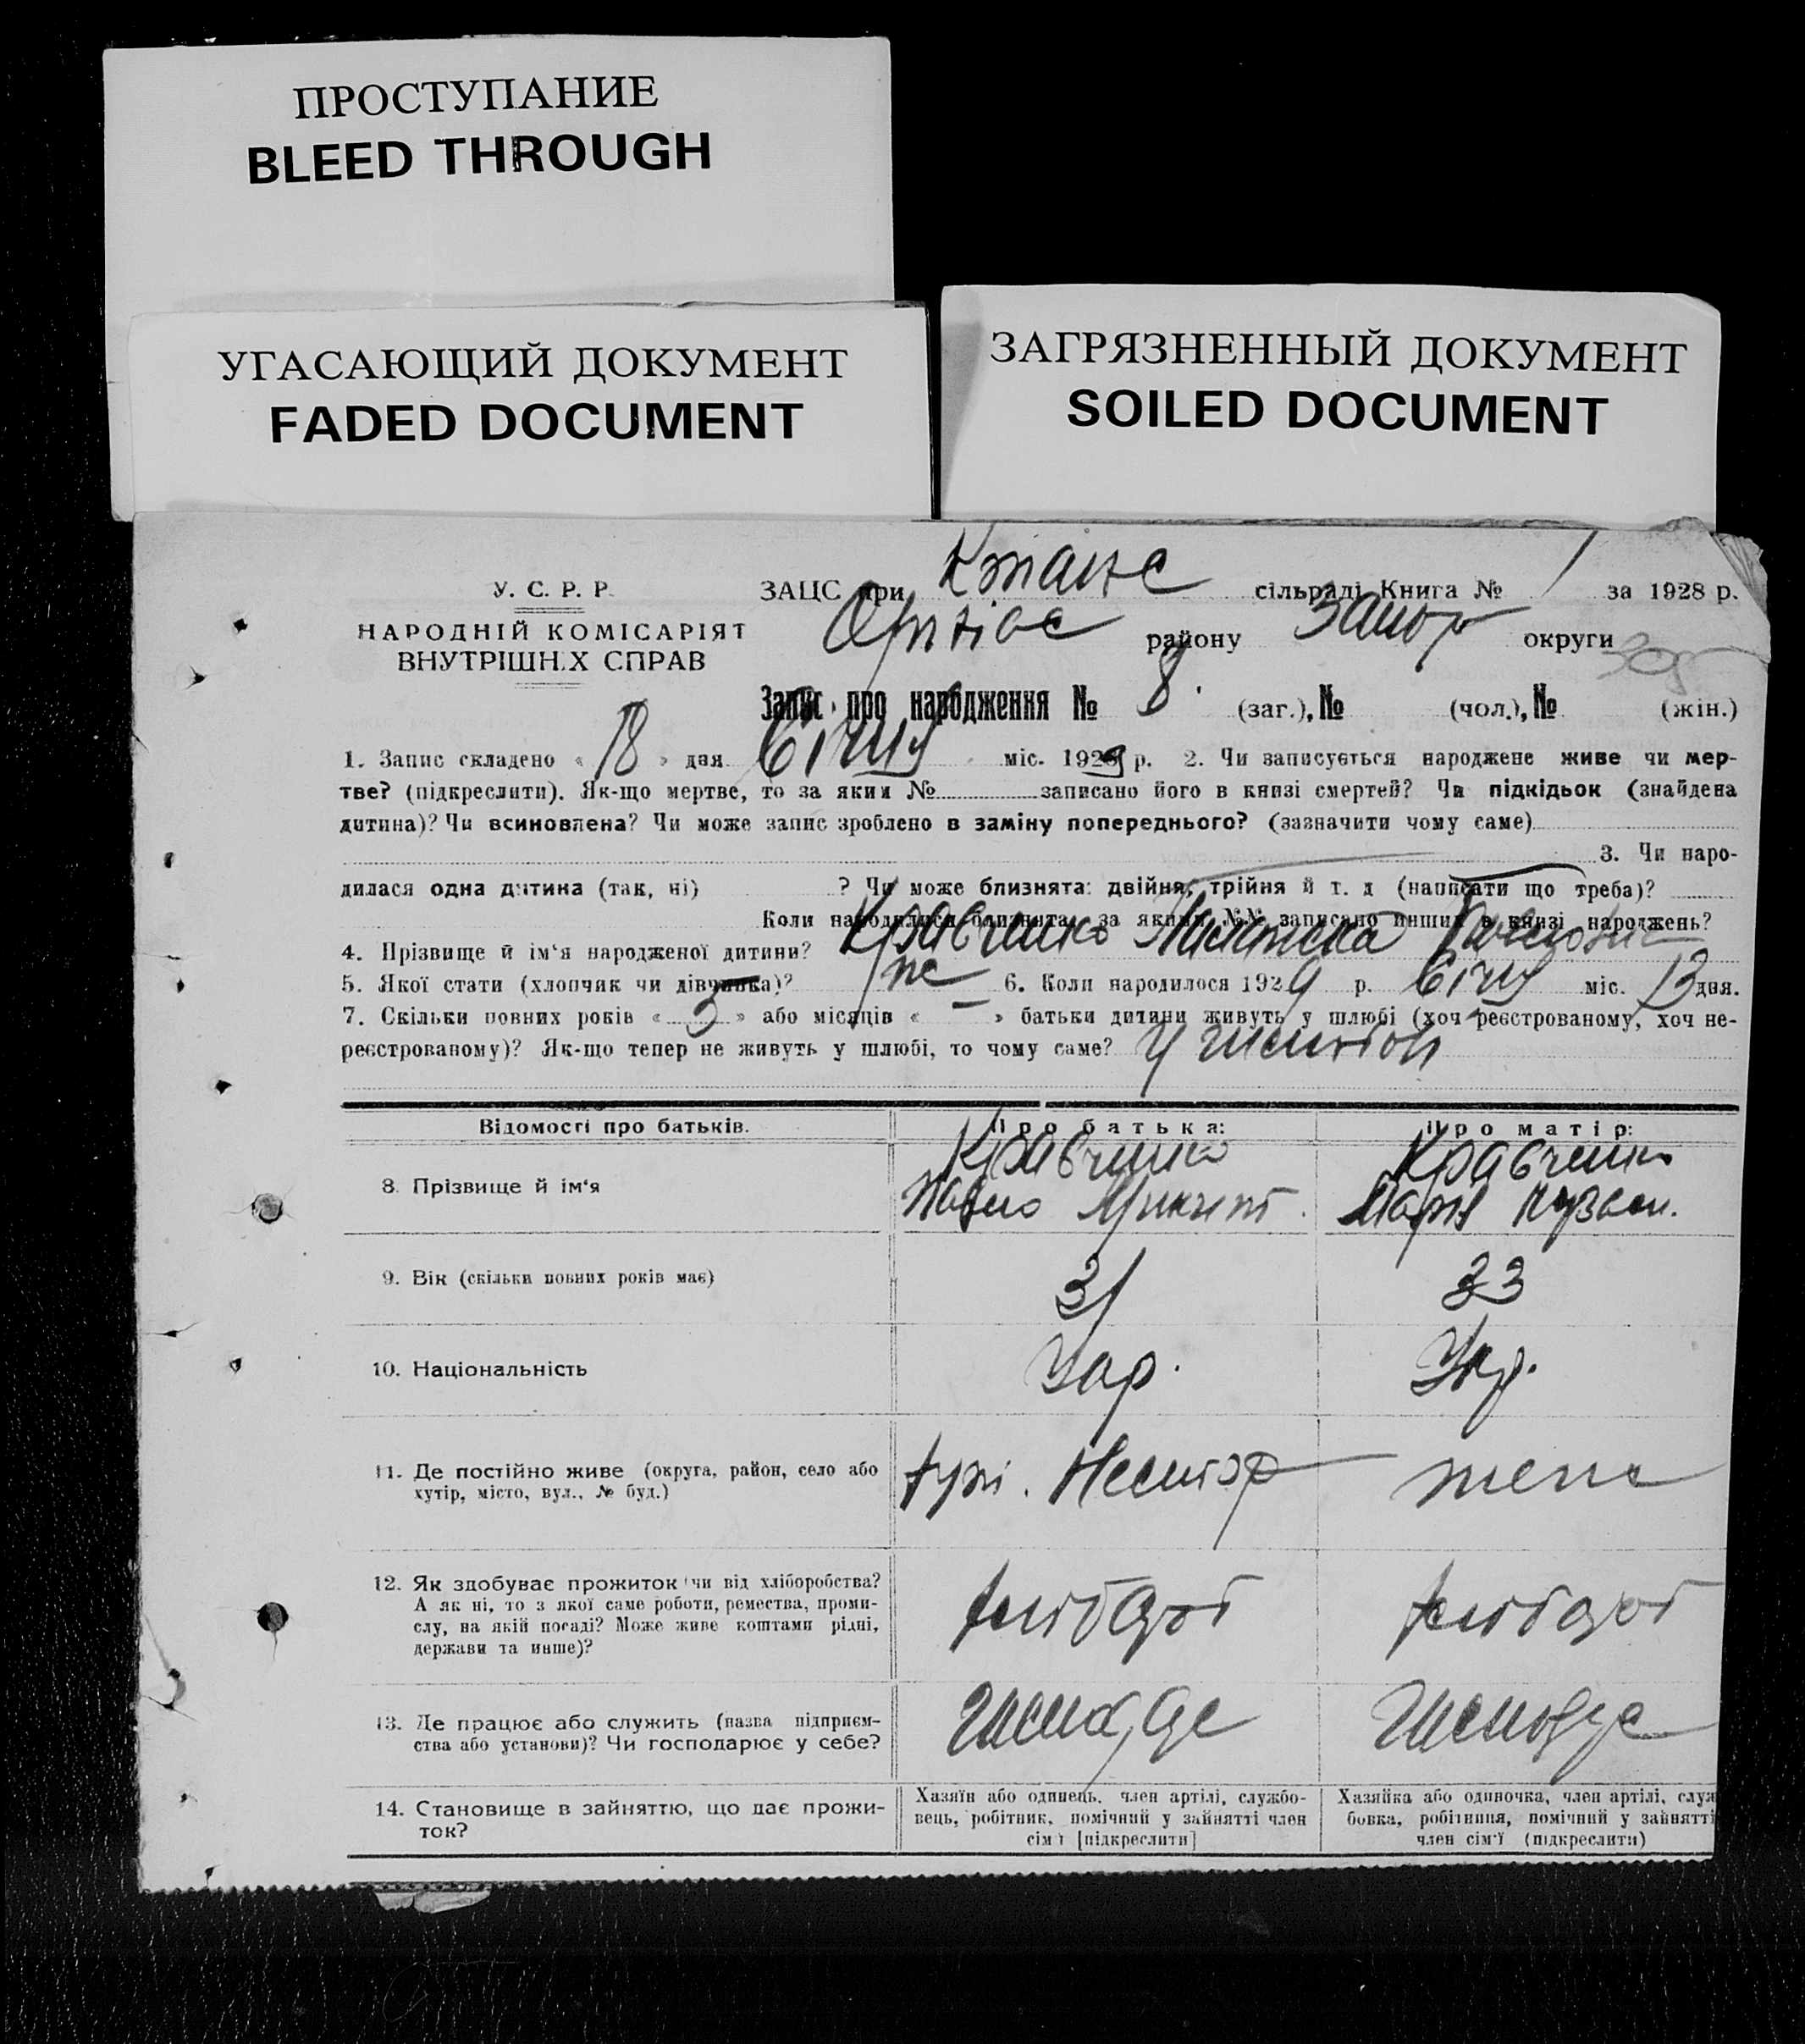 ПРОСТУПАНИЕ
BLEED THROUGH
УГАСАЮЩИЙ ДОКУМЕНТ
FADED DOCUMENT
ЗАГРЯЗНЕННЫЙ ДОКУМЕНТ
SOILED DOCUMENT
У. С. Р. Р.
НАРОДНІЙ КОМІСАРІЯТ
ВНУТРІШНІХ СПРАВ
ЗАЦС при сільраді Книга № 1 за 1928 р.
району Запор округи
Запис про народження № 8. (заг.), № (чол.), № (жін.)
1. Запис складено « 18 » дня Січня міс. 1929 р. 2. Чи записується народжене живе чи мер-
тве? (підкреслити). Як-що мертве, то за яким № записано його в книзі смертей? Чи підкідьок (знайдена
дитина)? Чи всиновлена? Чи може запис зроблено в заміну попереднього? (зазначити чому саме)
3. Чи наро-
дилася одна дитина (так, ні) ? Чи може близнята: двійня, трійня й т. д (написати що треба)?
Коли народилися близнята, за яким №№ записано инших в книзі народжень?
4. Прізвище й ім'я народженої дитини? Кравченко
5. Якої стати (хлопчяк чи дівчинка)? 6. Коли народилося 1929 р. Січня міс. 13 дня.
7. Скільки повних років « 5 » або місяців « — » батьки дитини живуть у шлюбі (хоч реєстрованому, хоч не-
реєстрованому)? Як-що тепер не живуть у шлюбі, то чому саме?
Відомості про батьків. Про батька: Про матір:
8. Прізвище й ім'я
Кравченко
Павло
Кравченко
Марія Кузьм.
9. Вік (скільки повних років має) 31 33
10. Національність Укр. Укр.
11. Де постійно живе (округа, район, село або
хутір, місто, вул., № буд.)
12. Як здобуває прожиток чи від хліборобства?
А як ні, то з якої саме роботи, ремества, проми-
слу, на якій посаді? Може живе коштами рідні,
держави та инше)?
хлібороб хлібороб
13. Де працює або служить (назва підприєм-
ства або установи)? Чи господарює у себе?
14. Становище в зайняттю, що дає прожи-
ток?
Хазяїн або одинець, член артілі, службо-
вець, робітник, помічний у зайнятті член
сім'ї [підкреслити]
Хазяйка або одиночка, член артілі, служ
бовка, робітниця, помічний у зайнятті
член сім'ї (підкреслити)